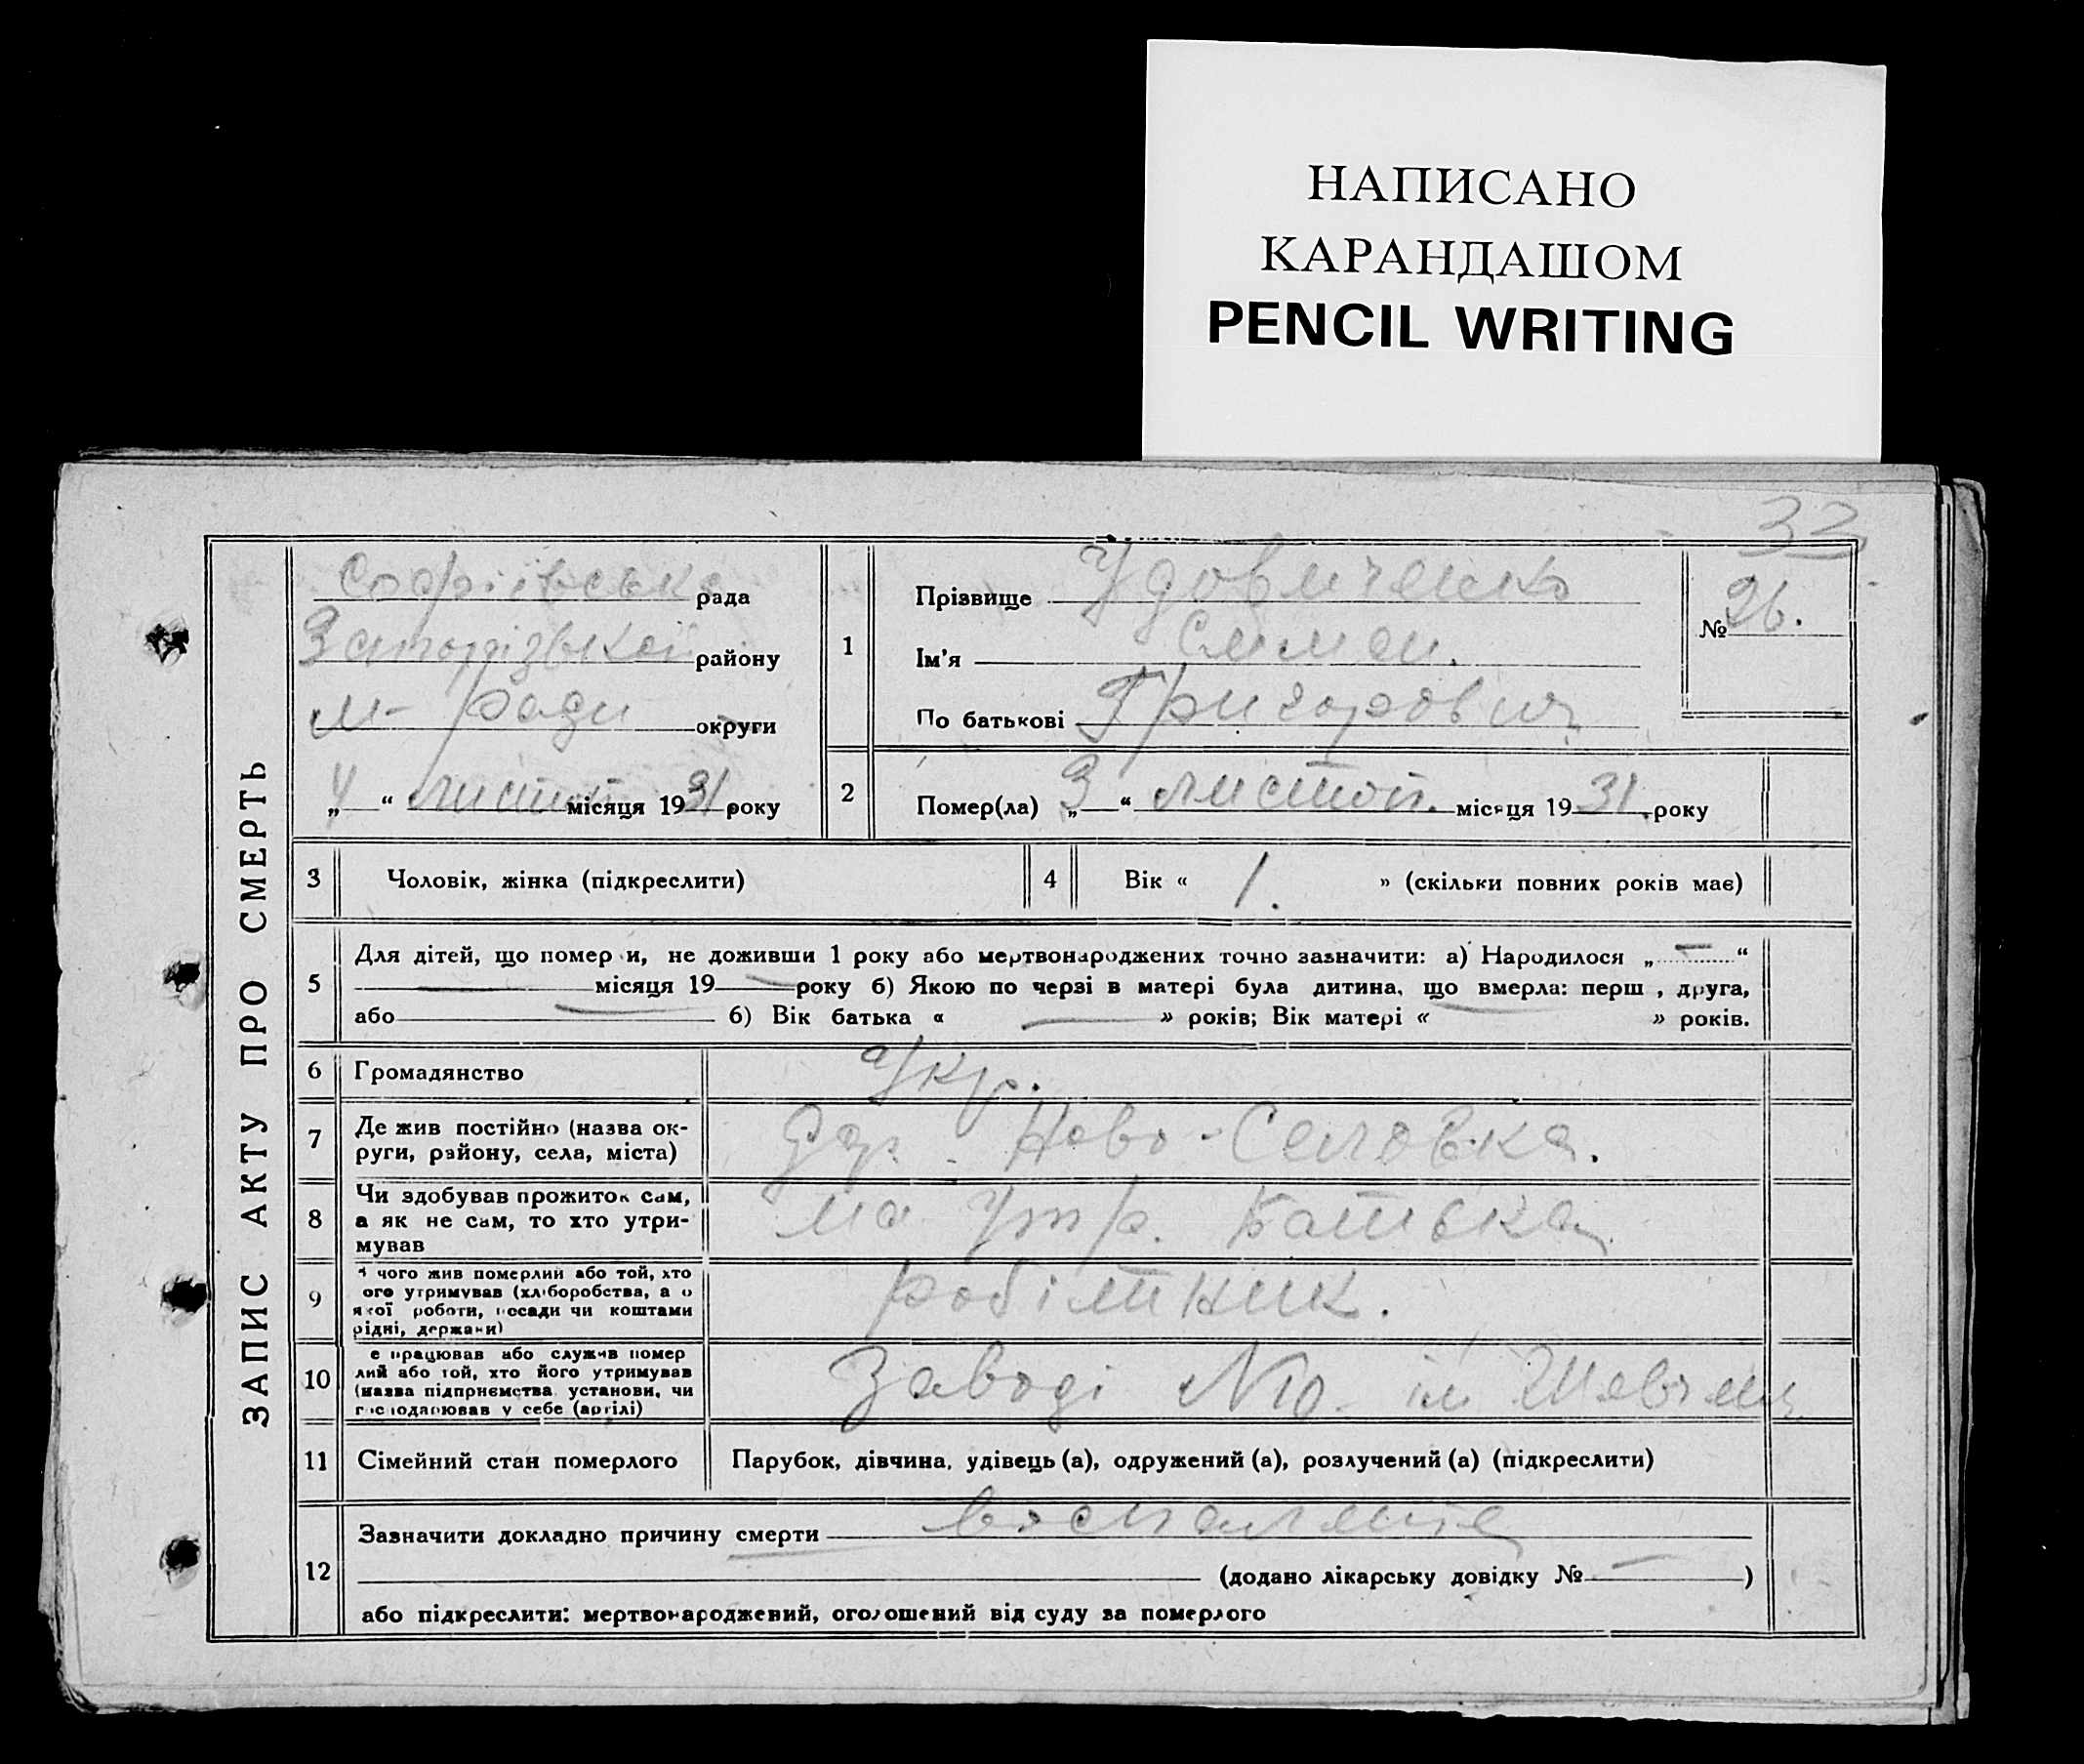 НАПИСАНО
КАРАНДАШОМ
PENCIL WRITING
33
ЗАПИС АКТУ ПРО СМЕРТЬ
Софіївська рада
Запорізької району
м- Ради округи
„ 4 “ листоп місяця 1931 року
1
Прізвище Удовиченко
Ім'я Симон.
По батькові Григорович
№ 26.
2
Помер(ла) „ 3 “ листоп. місяця 1931 року
3 Чоловік, жінка (підкреслити)
4 Вік « 1. » (скільки повних років має)
5
Для дітей, що помер и, не доживши 1 року або мертвонароджених точно зазначити: а) Народилося „ — “
— місяця 19 — року б) Якою по черзі в матері була дитина, що вмерла: перш , друга,
або — б) Вік батька « — » років; Вік матері « » років.
6 Громадянство укр.
7 Де жив постійно (назва ок-
руги, району, села, міста)
Ново-Селовка.
8 Чи здобував прожиток сам,
а як не сам, то хто утри-
мував
на утр. батька
9 чого жив померлий або той, хто
ого утримував (хліборобства, а о
якої роботи, посади чи коштами
рідні, держави)
робітник.
10 е працював або служив помер
лий або той, хто його утримував
(назва підприємства установи, чи
господарював у себе (артілі)
Заводі №10. ім Шевченк
11 Сімейний стан померлого Парубок, дівчина, удівець (а), одружений (а), розлучений (а) (підкреслити)
12
Зазначити докладно причину смерти воспаленіе
(додано лікарську довідку № — )
або підкреслити: мертвонароджений, оголошений від суду за померлого